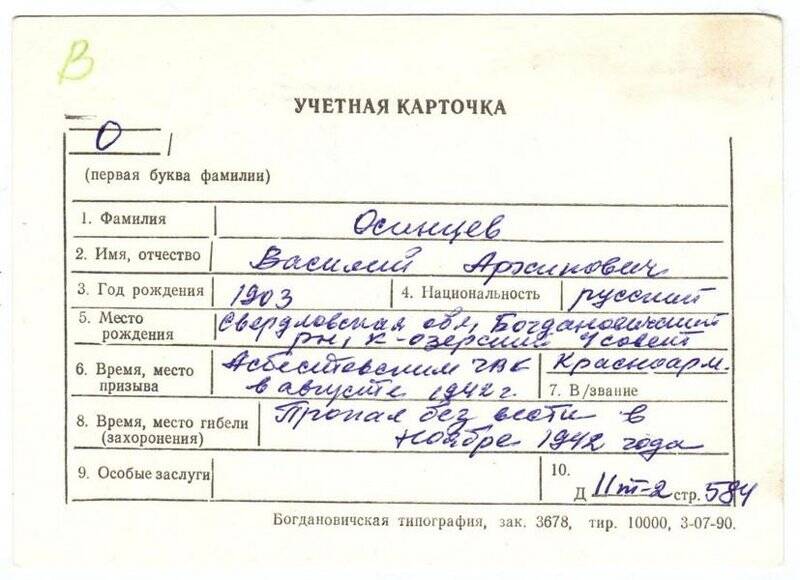 В
УЧЕТНАЯ КАРТОЧКА
О
(первая буква фамилии)
1. Фамилия Осинцев
2. Имя, отчество Василий Архипович
3. Год рождения 1903 4. Национальность русский
5. Место рождения Свердловская обл, Богдановичский
рн, К-озерский с/совет
6. Время, место призыва Асбестовским ГВК
в августе 1942 г.
7. В/звание Красноарм.
8. Время, место гибели (захоронения) Пропал без вести в
ноябре 1942 года
9. Особые заслуги
10.
Д IIт-2 стр. 584
Богдановичская типография, зак. 3678, тир. 10000, 3-07-90.